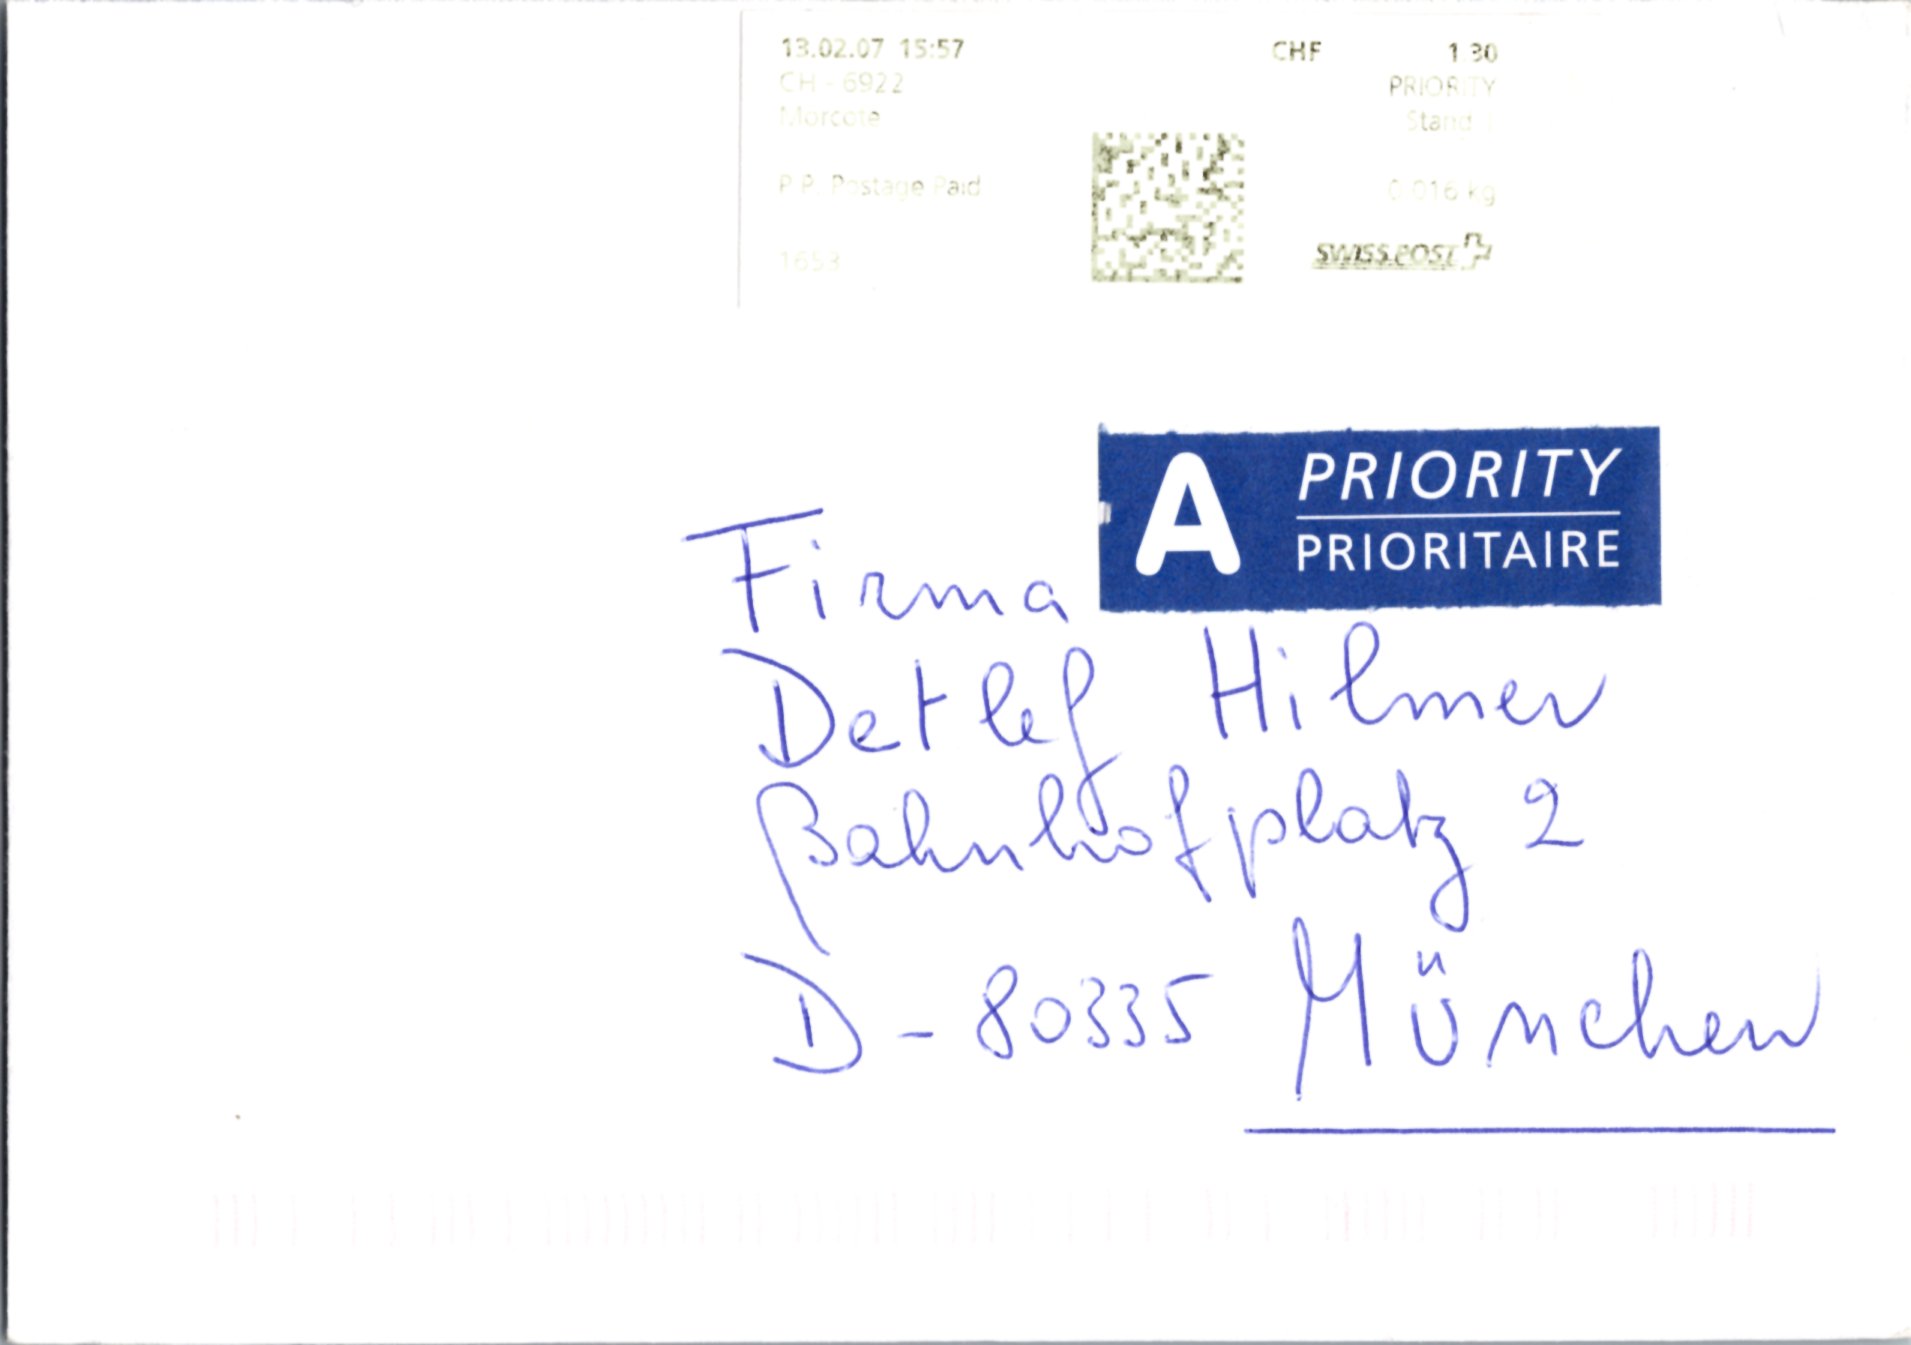 13.02.07 15:57
CHF 1.30
CH - 6922
PRIORITY
Morcote
Stand 1
P.P. Postage Paid
0.016 kg
1653
SWISS POST
A
PRIORITY
PRIORITAIRE
Firma
Detlef Hilmer
Bahnhofplatz 2
D - 80335 München